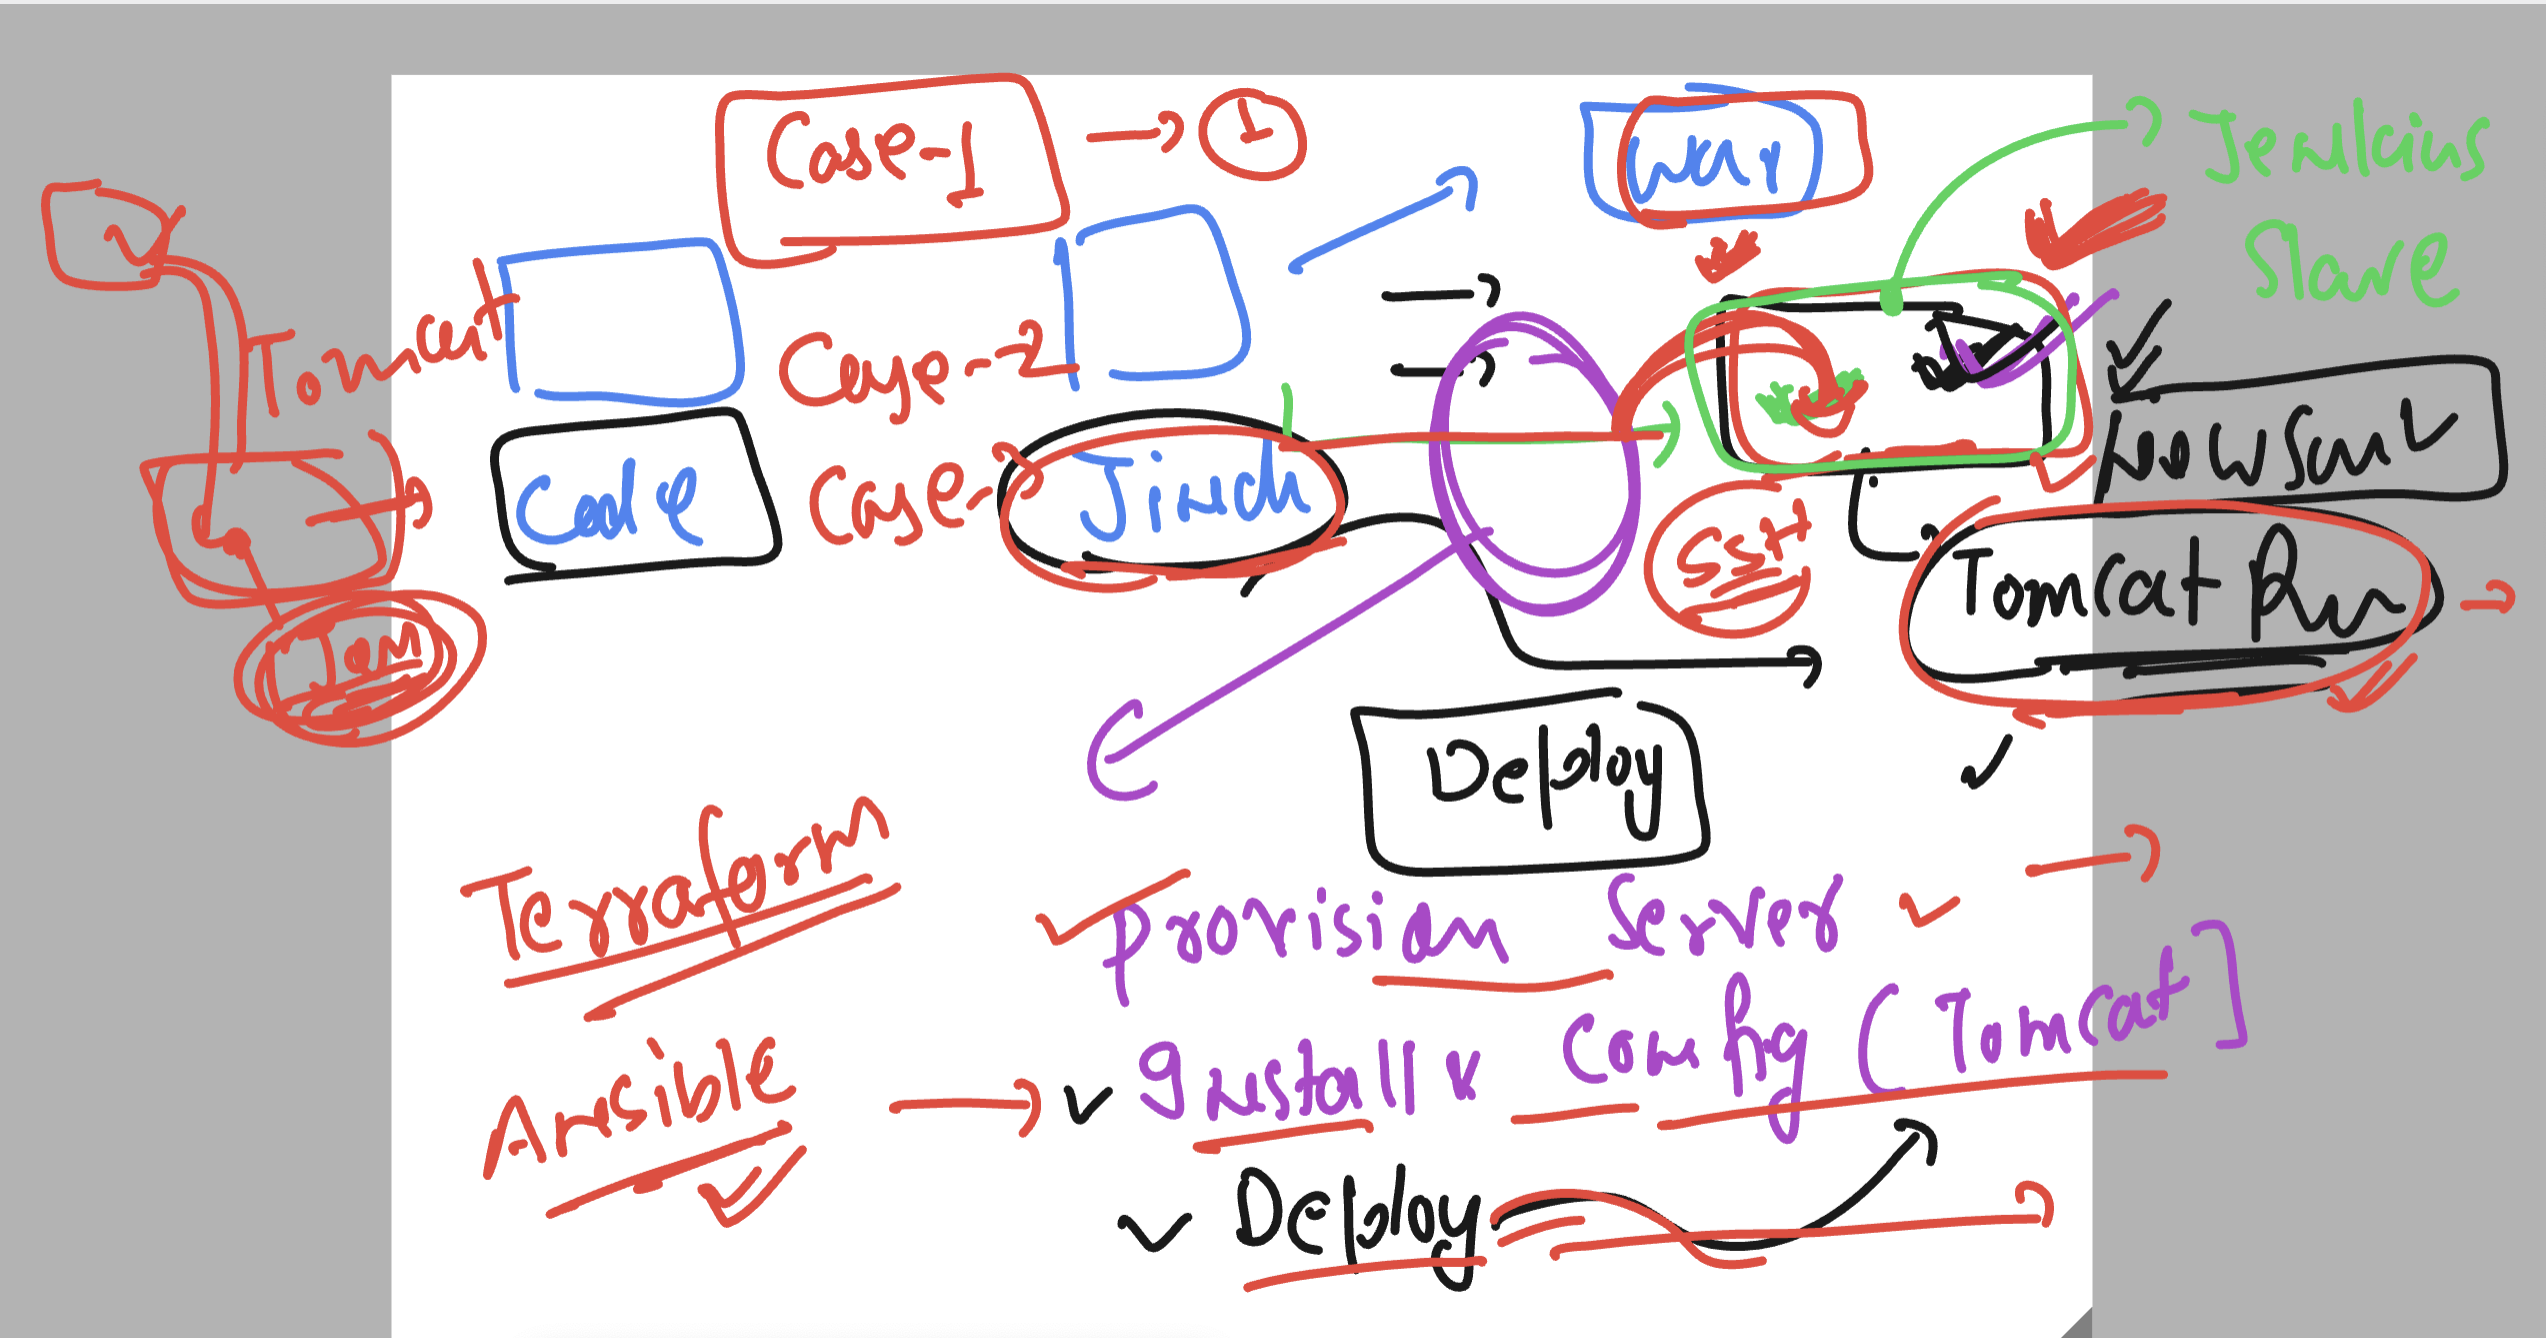 Case-1 → 1
War
Jenkins
Slave
Tomcat
Case-2
Code
Case-3
SSH
Tomcat Run
Deploy
Terraform
Provision Server
Ansible → Install & Config (Tomcat]
Deploy